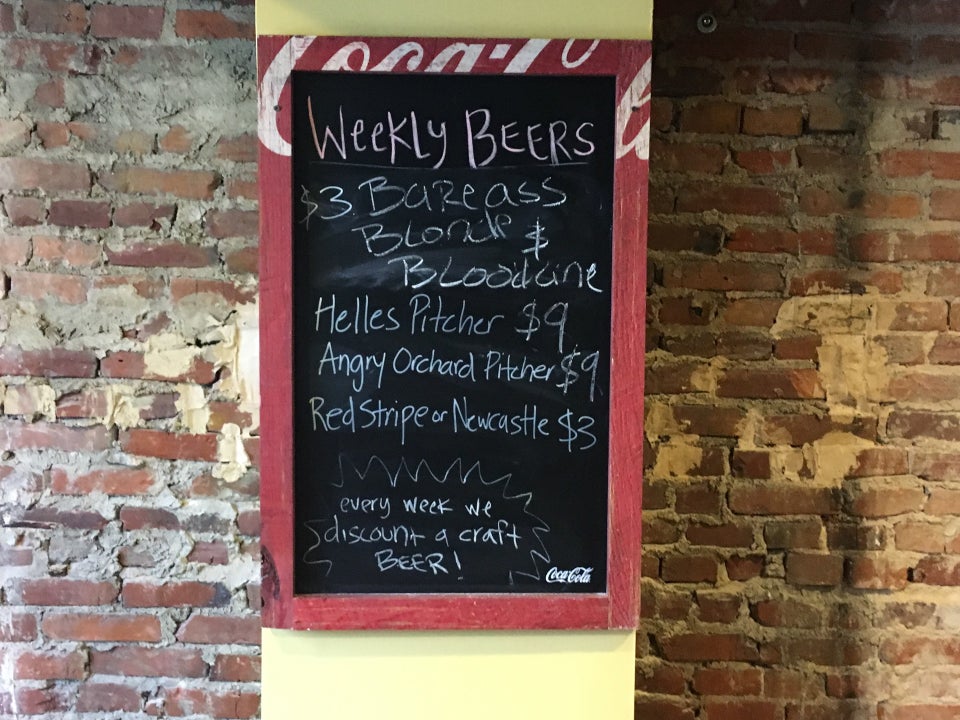 Coca-Cola
Weekly Beers
$3 Bareass
Blonde $
Bloodline
Helles Pitcher $9
Angry Orchard Pitcher $9
Red Stripe or Newcastle $3
every week we
discount a craft
BEER!
Coca-Cola